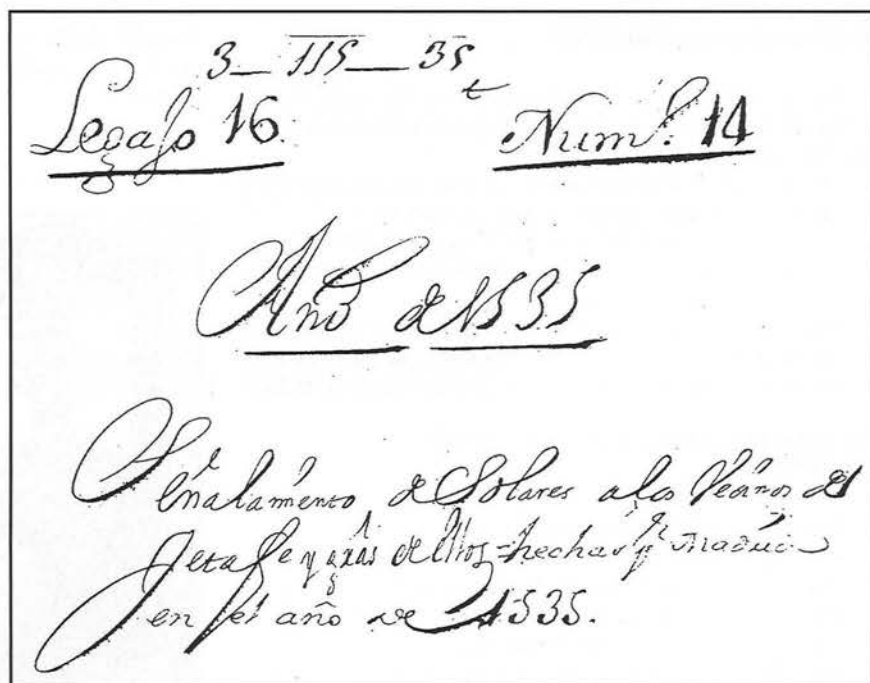 3_ 115_ 35
Legajo 16. Num.º 14
Año de 1535
Señalamiento de Solares a los Vecinos de
Jetafe y de ellos hechas pr Madrid
en el año de 1535.